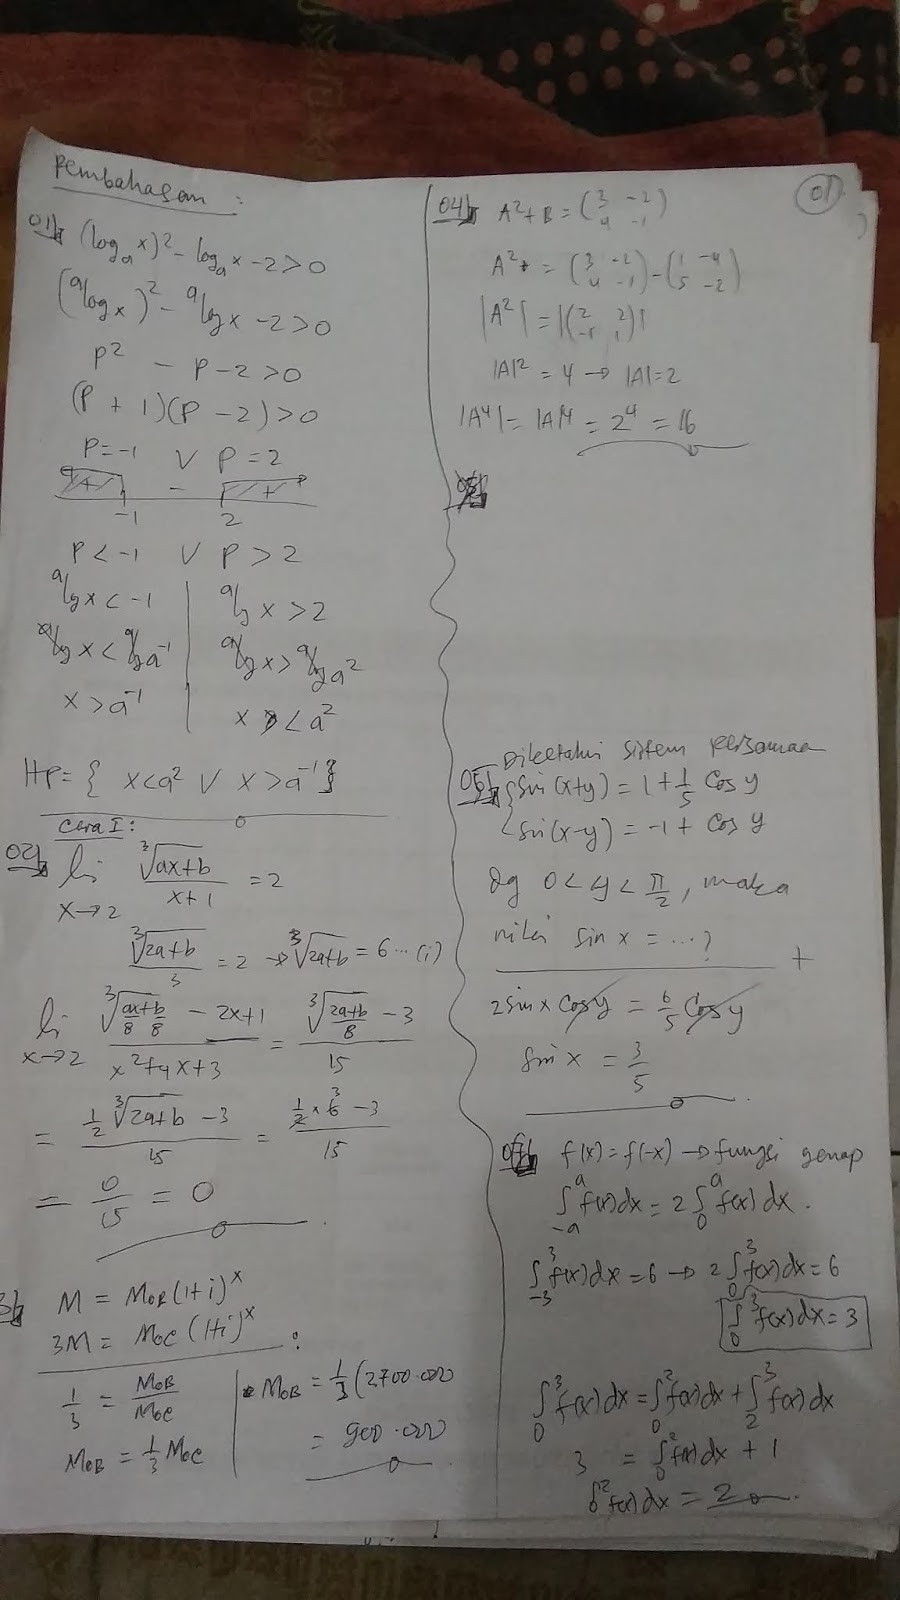 Pembahasan :
01. (log_a x)² - log_a x - 2 > 0
(ᵃlog x)² - ᵃlog x - 2 > 0
p² - p - 2 > 0
(p + 1)(p - 2) > 0
p = -1 ∨ p = 2
+ - +
-1 2
p < -1 ∨ p > 2
ᵃlog x < -1 | ᵃlog x > 2
ᵃlog x < ᵃlog a⁻¹ | ᵃlog x > ᵃlog a²
x > a⁻¹ | x < a²
HP = { x < a² ∨ x > a⁻¹ }
Cara I :
02. lim x→2 ∛(ax+b) / (x+1) = 2
∛(2a+b) / 3 = 2 → ∛(2a+b) = 6 ... (i)
lim x→2 (∛(ax/8 + b/8) - 2x+1) / (x²+4x+3) = (∛((2a+b)/8) - 3) / 15
= (½ ∛(2a+b) - 3) / 15 = (½ × 6 - 3) / 15
= 0/15 = 0
3. M = M₀B (1+i)ˣ
3M = M₀C (1+i)ˣ :
1/3 = M₀B / M₀C
M₀B = 1/3 M₀C
M₀B = 1/3 (2700.000
= 900.000
01
04. A² + B = (3 -2; 4 -1)
A² = (3 -2; 4 -1) - (1 -4; 5 -2)
|A²| = |(2 2; -1 1)|
|A|² = 4 → |A| = 2
|A⁴| = |A|⁴ = 2⁴ = 16
05. Diketahui sistem persamaan
{ sin(x+y) = 1 + 1/5 cos y
sin(x-y) = -1 + cos y
dg 0 < y < π/2, maka
nilai sin x = ...?
+
2 sin x cos y = 6/5 cos y
sin x = 3/5
f(x) = f(-x) → fungsi genap
∫₋ₐᵃ f(x) dx = 2 ∫₀ᵃ f(x) dx.
∫₋₃³ f(x) dx = 6 → 2 ∫₀³ f(x) dx = 6
∫₀³ f(x) dx = 3
∫₀³ f(x) dx = ∫₀² f(x) dx + ∫₂³ f(x) dx
3 = ∫₀² f(x) dx + 1
∫₀² f(x) dx = 2